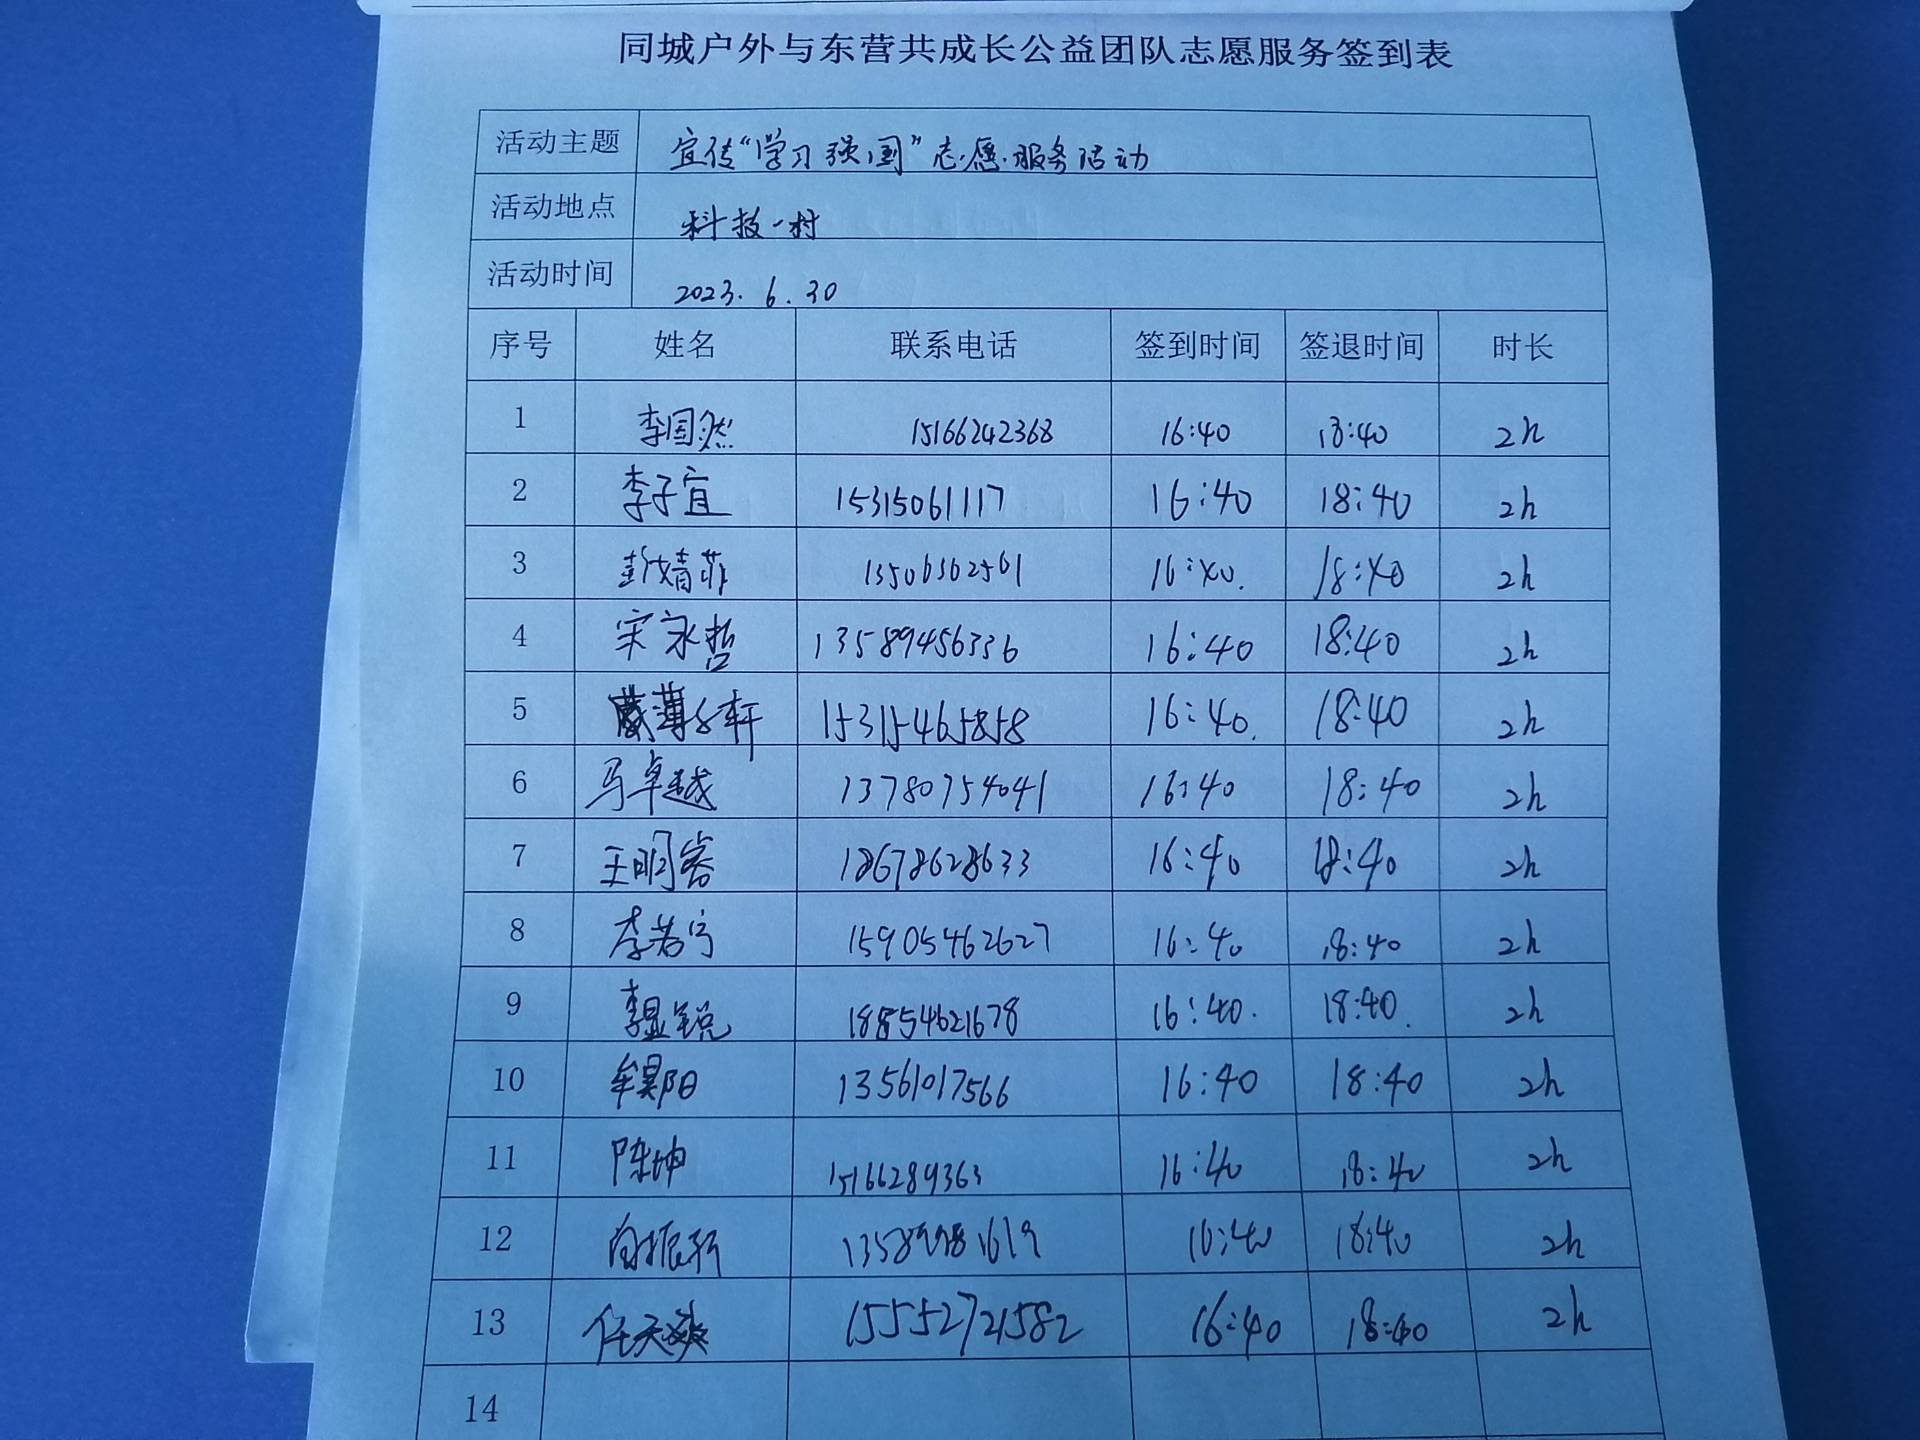 同城户外与东营共成长公益团队志愿服务签到表
活动主题 宣传“学习强国”志愿服务活动
活动地点 科技一村
活动时间 2023.6.30
序号 姓名 联系电话 签到时间 签退时间 时长
1 李国然 15166242368 16:40 18:40 2h
2 李子宜 15315061117 16:40 18:40 2h
3 彭婧菲 13506362561 16:40. 18:40 2h
4 宋永哲 13589456336 16:40 18:40 2h
5 薄 轩 15315465858 16:40. 18:40 2h
6 马卓越 13780754041 16:40 18:40 2h
7 王明睿 18678628633 16:40 18:40 2h
8 李若宁 15905462627 16:40 18:40 2h
9 李显锐 18854621678 16:40. 18:40. 2h
10 牟昊阳 13561017566 16:40 18:40 2h
11 陈坤 15166289363 16:40 18:40 2h
12 16:40 18:40 2h
13 任天爽 15552721582 16:40 18:40 2h
14